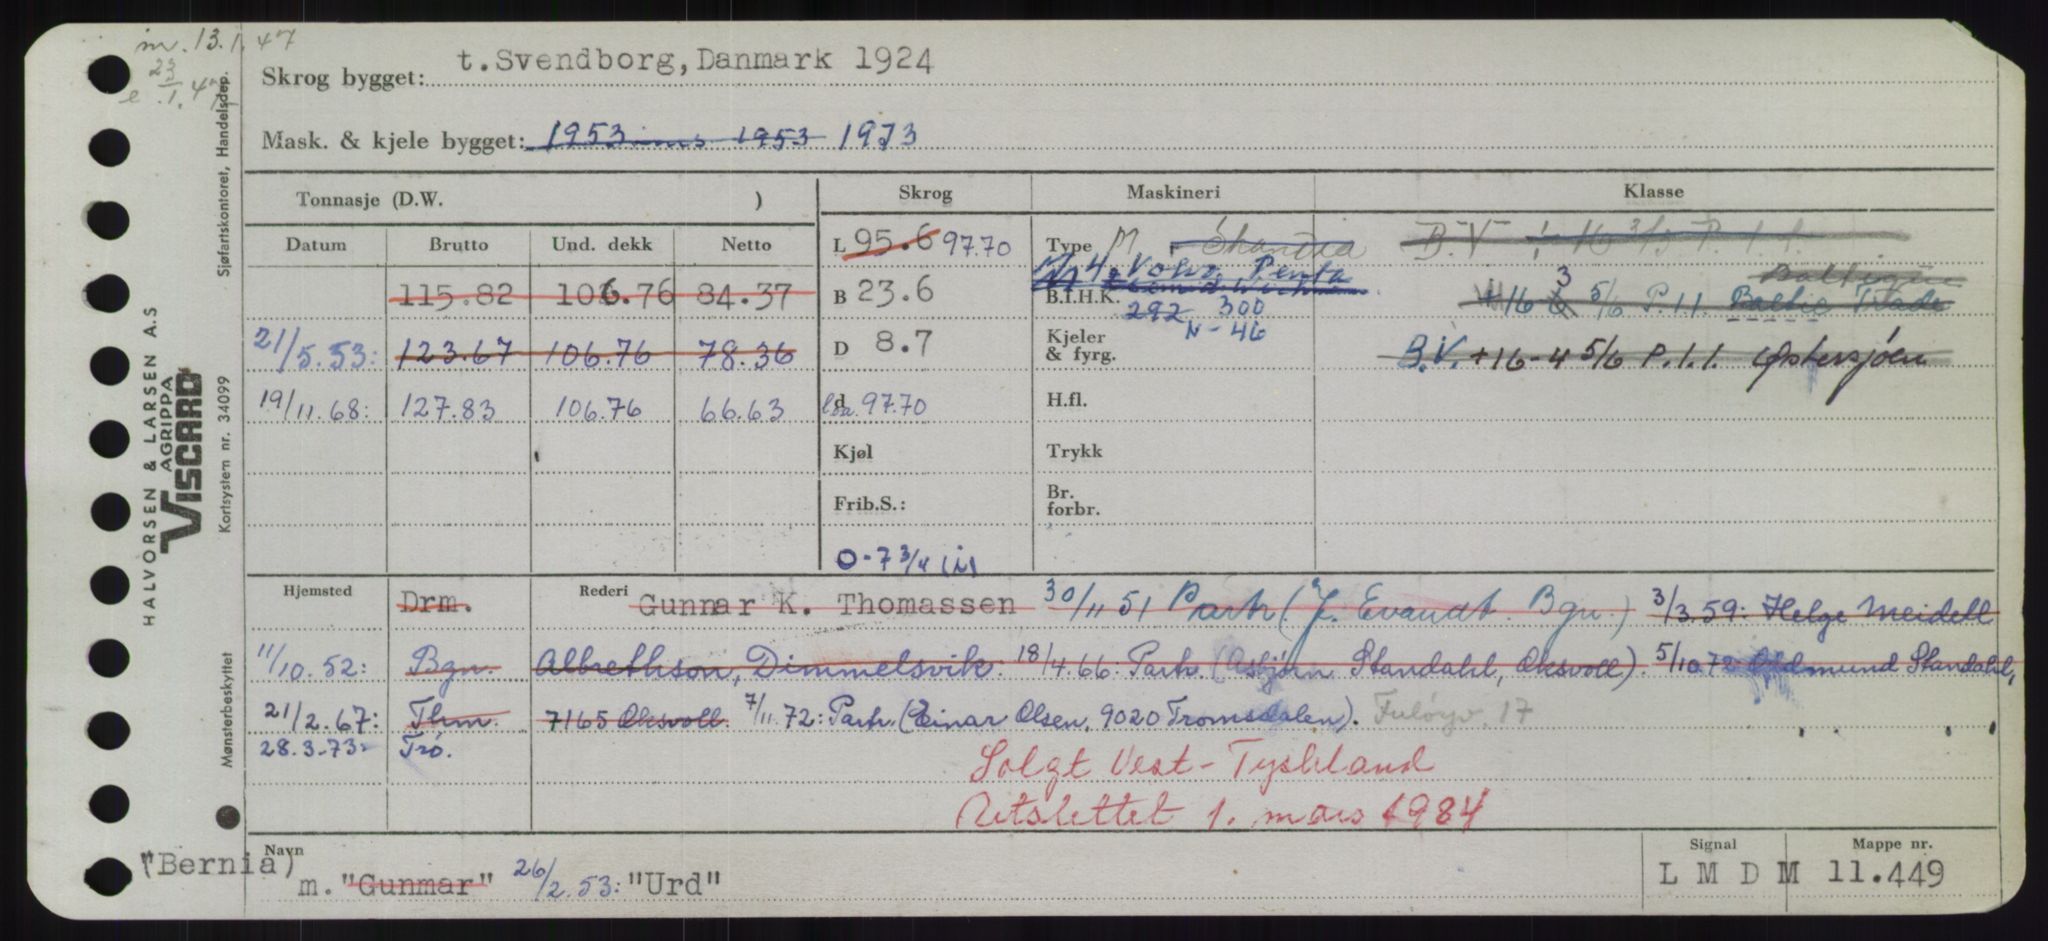 m. 13.1.47
e 23/1.47
Skrog bygget: t. Svendborg, Danmark 1924
Mask. & kjele bygget: 1953 1953 1973
Tonnasje (D.W. ) Skrog Maskineri Klasse
Datum Brutto Und. dekk Netto L 95.6 97.70 Type M Skandia B.V
M 4 Volvo Penta
115.82 106.76 84.37 B 23.6 B.I.H.K. 292 300 +16 3 5/6 P.1.1. Baltic Trade
N-46
21/5.53: 123.67 106.76 78.36 D 8.7 Kjeler & fyrg. B.V. +16-4 5/6 P.1.1. Østersjøen
19/11.68: 127.83 106.76 66.63 d loa. 97.70 H.fl.
Kjøl Trykk
Frib.S.: Br. forbr.
0-7 3/4
Hjemsted Drm. Rederi Gunnar K. Thomassen 30/11 51 Partr. (J. Evandt. Bgn.) 3/3.59: Helge Meidell
11/10.52: Bgn. Albrethson, Dimmelsvik. 18/4.66: Partr. (Asbjørn Standahl, Oksvoll). 5/10.72 Oddmund Standahl,
21/2.67: Thm. 7165 Oksvoll. 7/11.72: Partr. (Einar Olsen, 9020 Tromsdalen). 17
28.3.73: Trø.
Solgt Vest-Tyskland
Utslettet 1. mars 1984
Navn Signal Mappe nr.
("Bernia) m. "Gunmar" 26/2.53: "Urd" L M D M 11.449
HALVORSEN & LARSEN A.S
AGRIPPA
VISCARD
Mønsterbeskyttet Kortsystem nr. 34099 Sjøfartskontoret, Handelsdep.